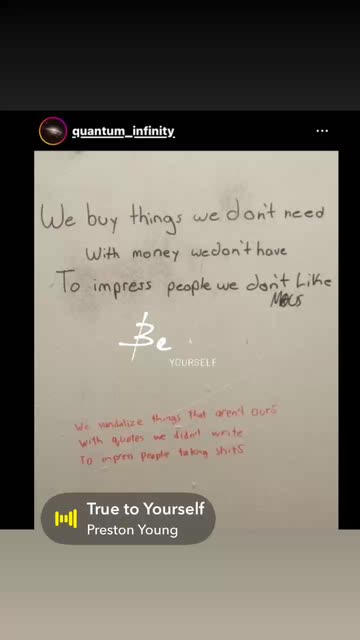 quantum_infinity
We buy things we don't need
With money we don't have
To impress people we don't Like
Be
YOURSELF
We vandalize things that aren't ours
With quotes we didn't write
To impress people taking shits
True to Yourself
Preston Young